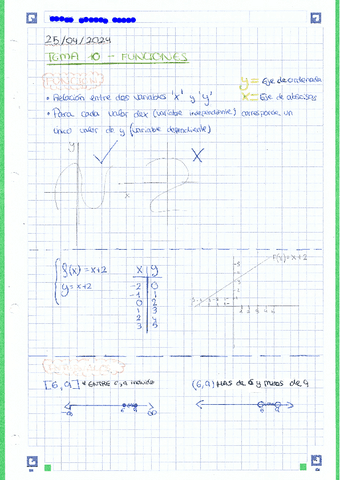 25/04/2024
TEMA 10 - FUNCIONES
FUNCIÓN
y = Eje de ordenada
x = Eje de abscisas
• Relación entre dos variables 'x' y 'y'
• Para cada valor de x (variable independiente) corresponde un
único valor de y (variable dependiente)
y
X
x
f(x) = x+2
y = x+2
x y
-2 0
-1 1
0 2
1 3
2 4
3 5
f(x) = x+2
[6,9] * ENTRE 6, 9 incluido
(6,9) MAS de 6 y menos de 9
-∞ 6 9 ∞
6 9